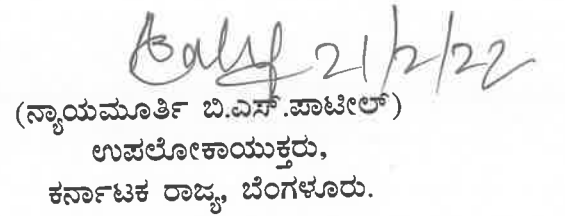 21/2/22
(ನ್ಯಾಯಮೂರ್ತಿ ಬಿ.ಎಸ್.ಪಾಟೀಲ್)
ಉಪಲೋಕಾಯುಕ್ತರು,
ಕರ್ನಾಟಕ ರಾಜ್ಯ, ಬೆಂಗಳೂರು.